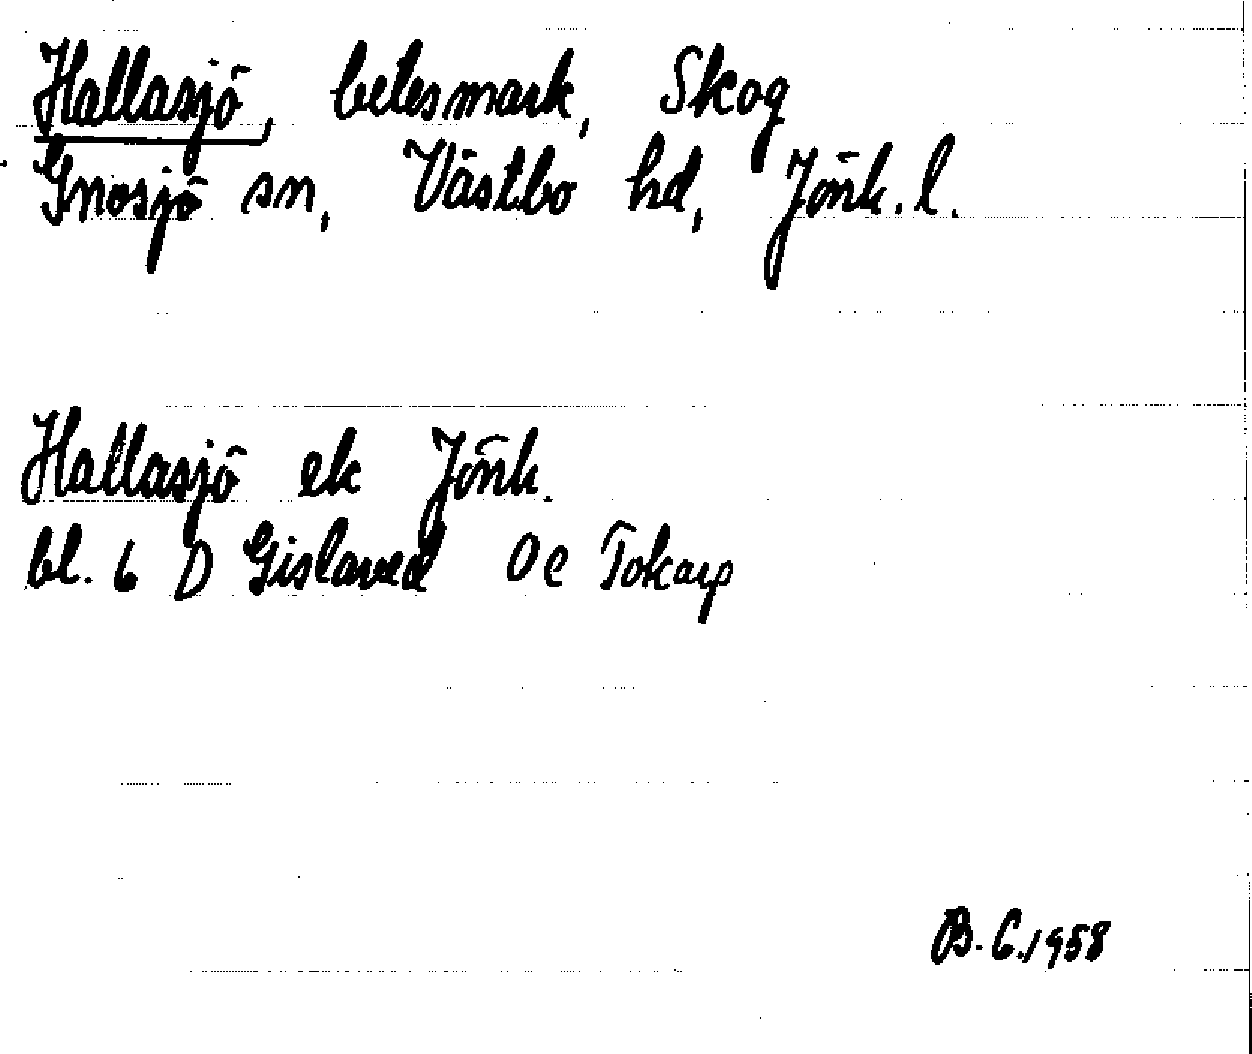 Hallasjö, betesmark, Skog
Gnosjö sn, Västbo hd, Jönk. l.
Hallasjö ek Jönk.
bl. 6 D Gislaved 0 e Tokarp
B. G. 1958